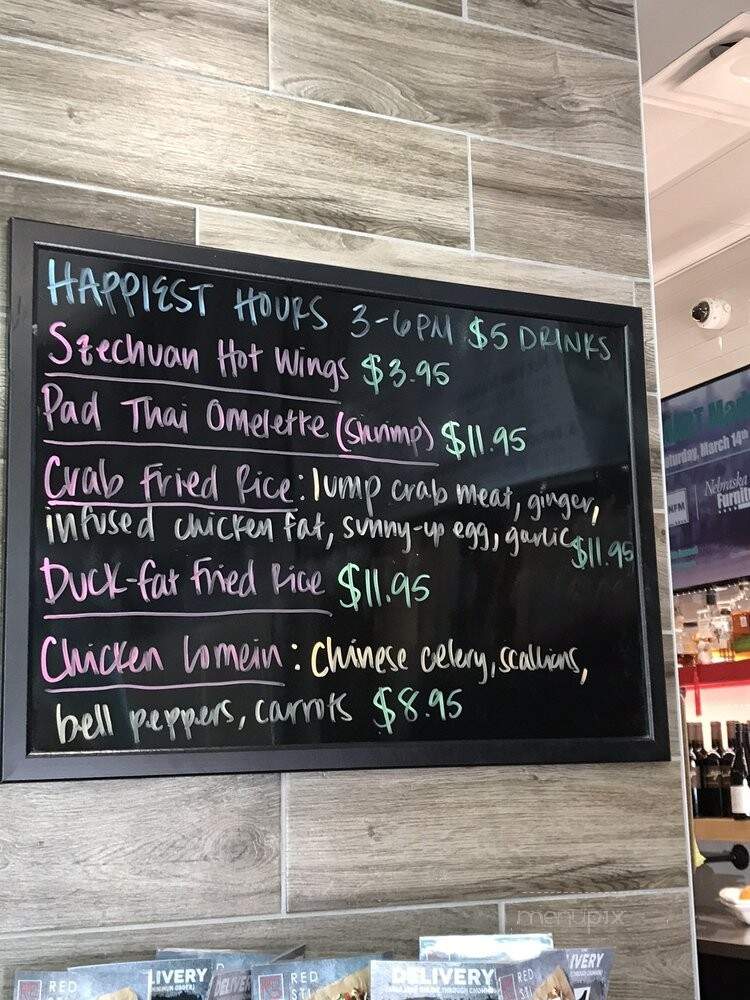 HAPPIEST HOURS 3-6PM $5 DRINKS
Szechuan Hot Wings $3.95
Pad Thai Omelette (shrimp) $11.95
Crab Fried Rice: lump crab meat, ginger,
infused chicken fat, sunny-up egg, garlic $11.95
Duck-fat Fried Rice $11.95
Chicken Lomein: Chinese celery, scallions,
bell peppers, carrots $8.95
Saturday, March 14th
NFM
Nebraska
Furni
menupix
RED
LIVERY
DELIVERY
RED
DELIVERY
RED
LIVERY